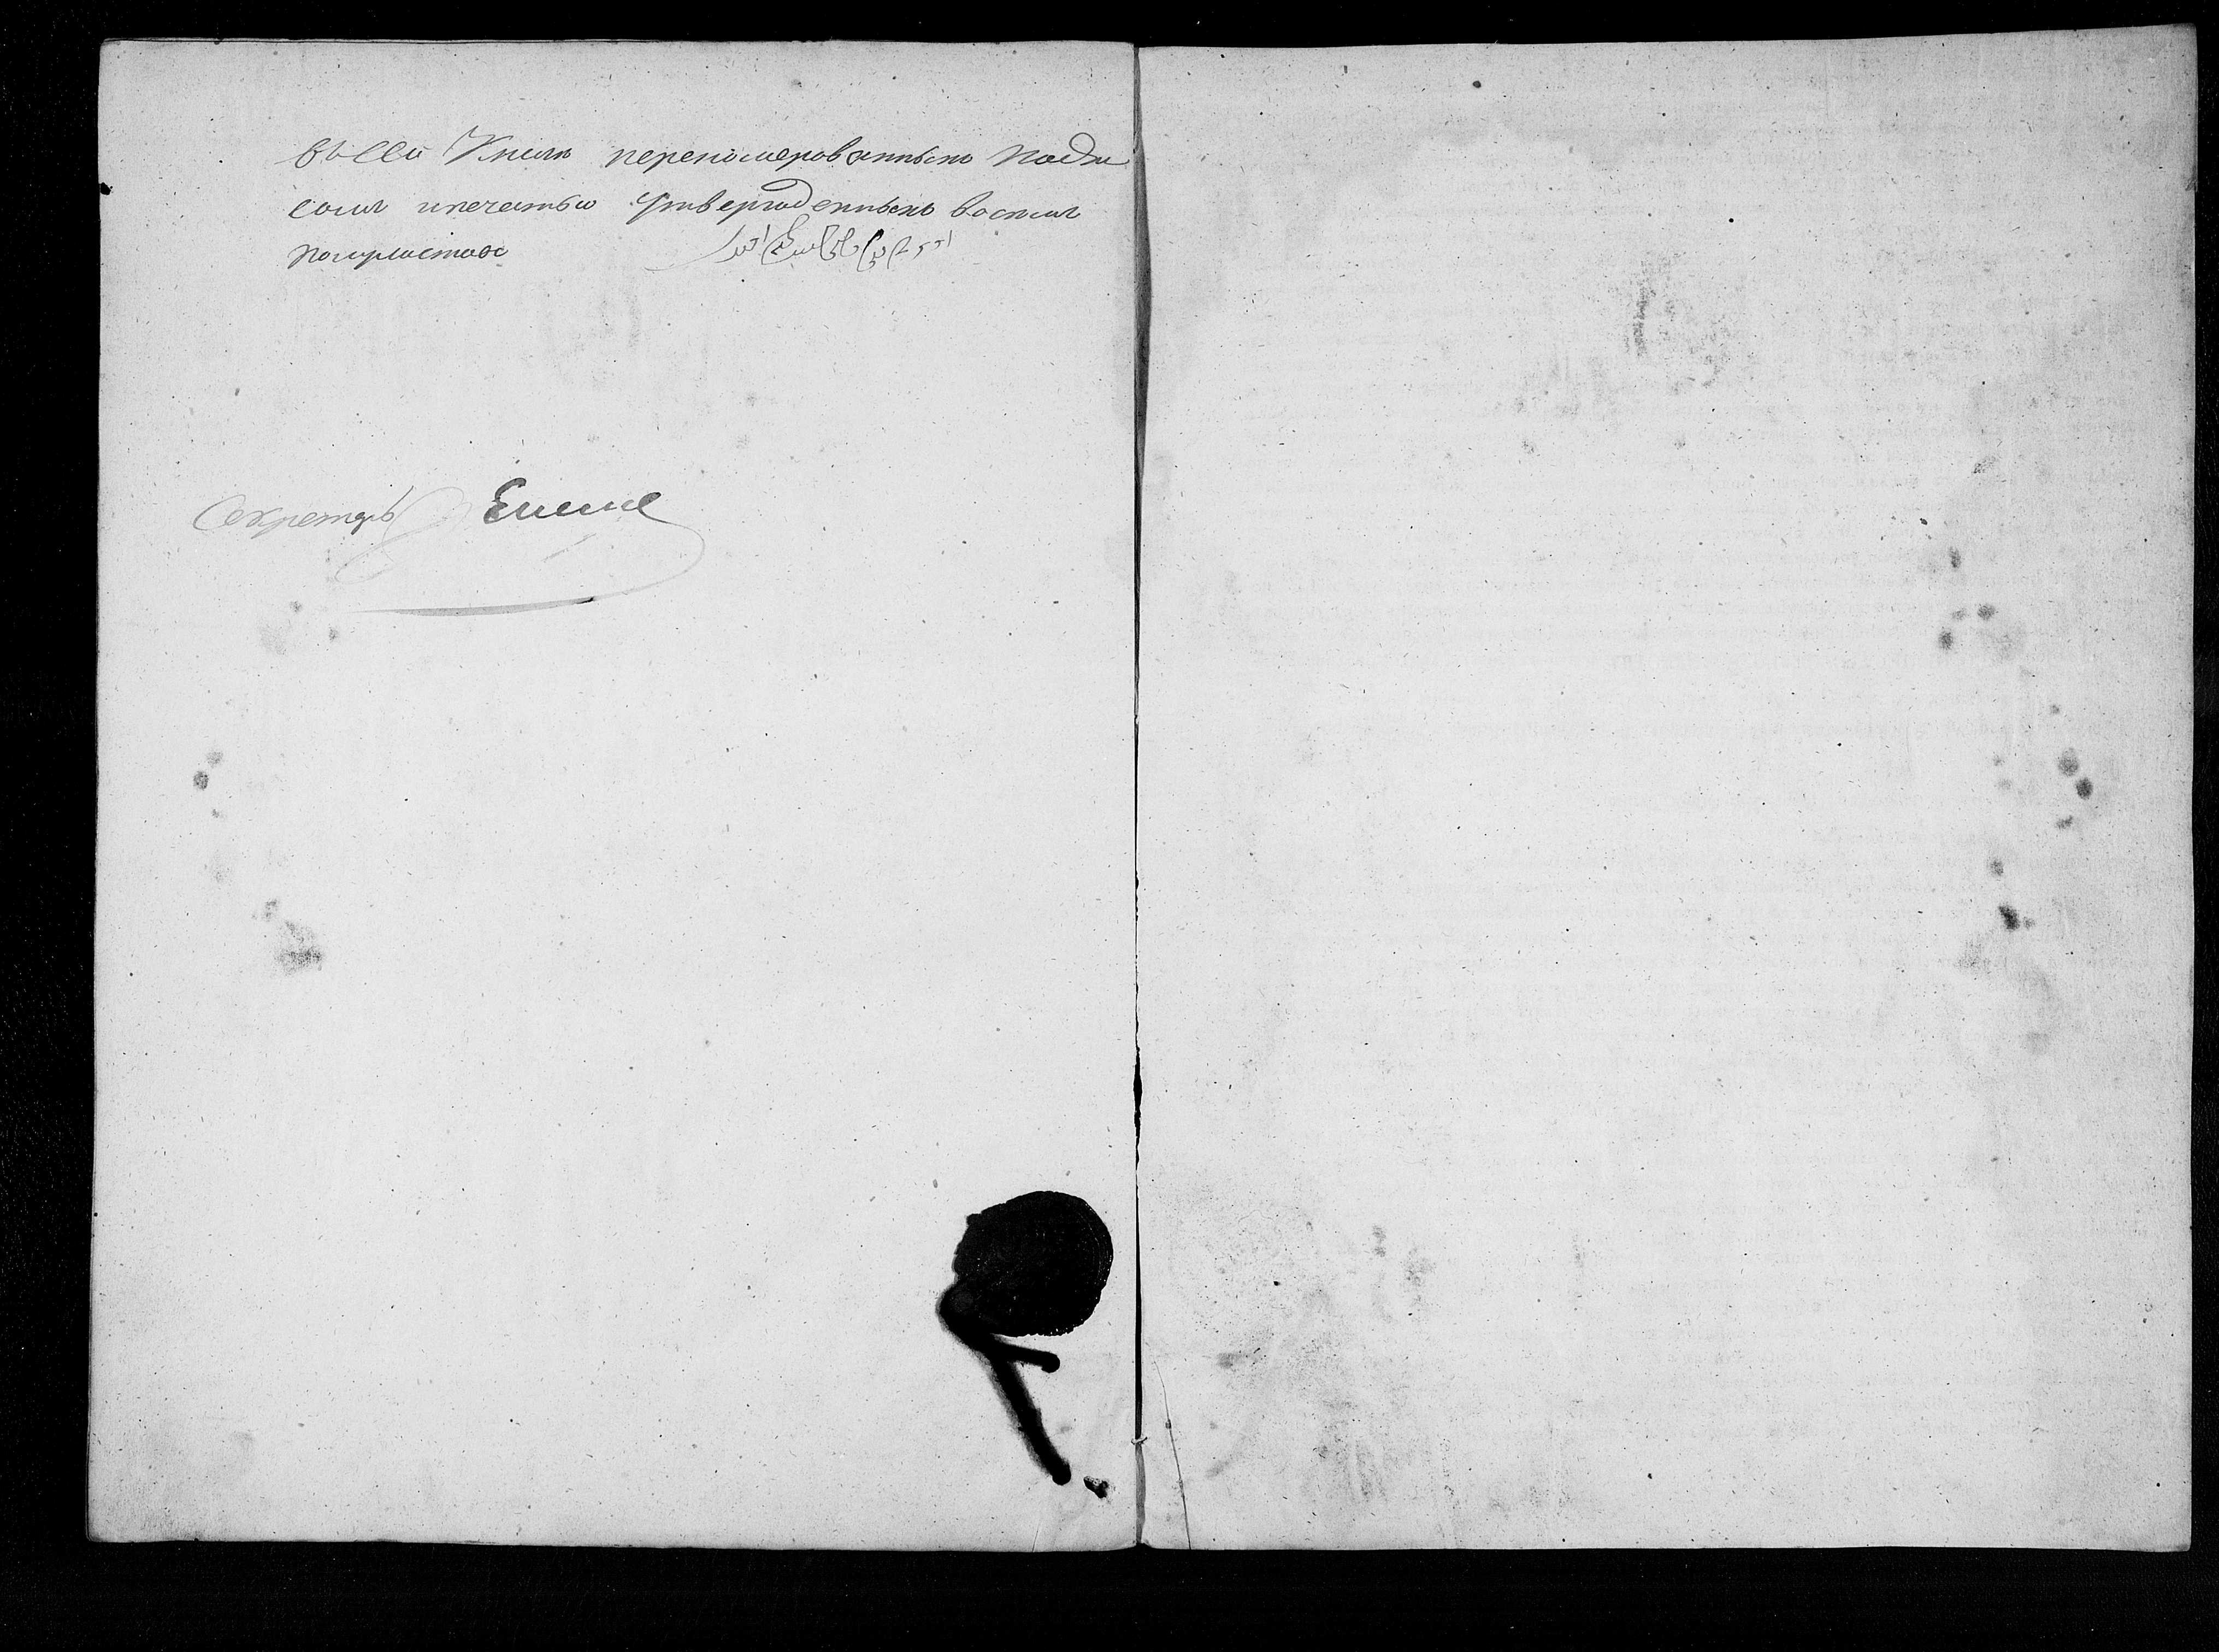 въ сей Книги перенумерованныхъ Подпи
сомъ ипечатью Утвержденныхъ восемъ
полулистовъ
Секретарь